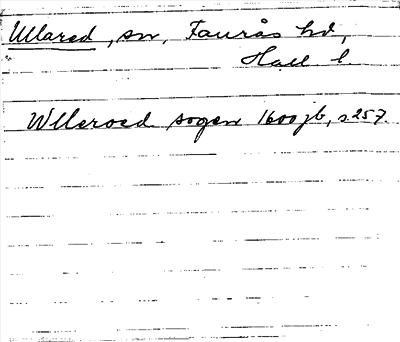 Ullared, sn, Faurås hd,
Hall l.
Wlleroed sogen 1600 jb, s 257.